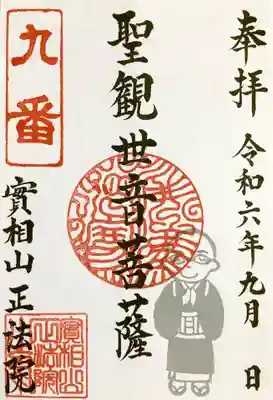 奉拝
令和六年九月 日
聖観世音菩薩
九番
實相山正法院
實相山正法院